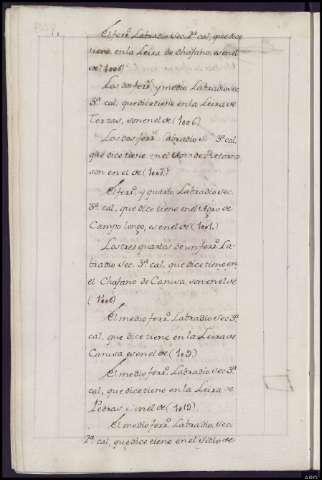 El ferr.º Labradio sec. 3ª cal. que dice
tiene en la Leira de Chafano, es en el
de
Los dos ferr.ˢ y medio Labradio sec.
3ª cal. que dice tiene en la Leira de
Terzas, son en el de (1006)
Los dos ferr.ˢ Labradio sec. 3ª cal.
que dice tiene en el Agro de
son en el de
El ferr.º y quarto Labradio sec.
3ª cal. que dice tiene en el Agro de
Campo longo, es en el de
Los tres quartos de un ferr.º La-
bradio sec. 3ª cal. que dice tiene en
el Chafano de Canusa, son en el de
El medio ferr.º Labradio sec. 3ª
cal. que dice tiene en la Leira de
Canusa es en el de
El medio ferr.º Labradio sec. 3ª
cal. que dice tiene en la Leira de
Pedras, es en el de
El medio ferr.º Labradio sec.
3ª cal. que dice tiene en el Sitio de